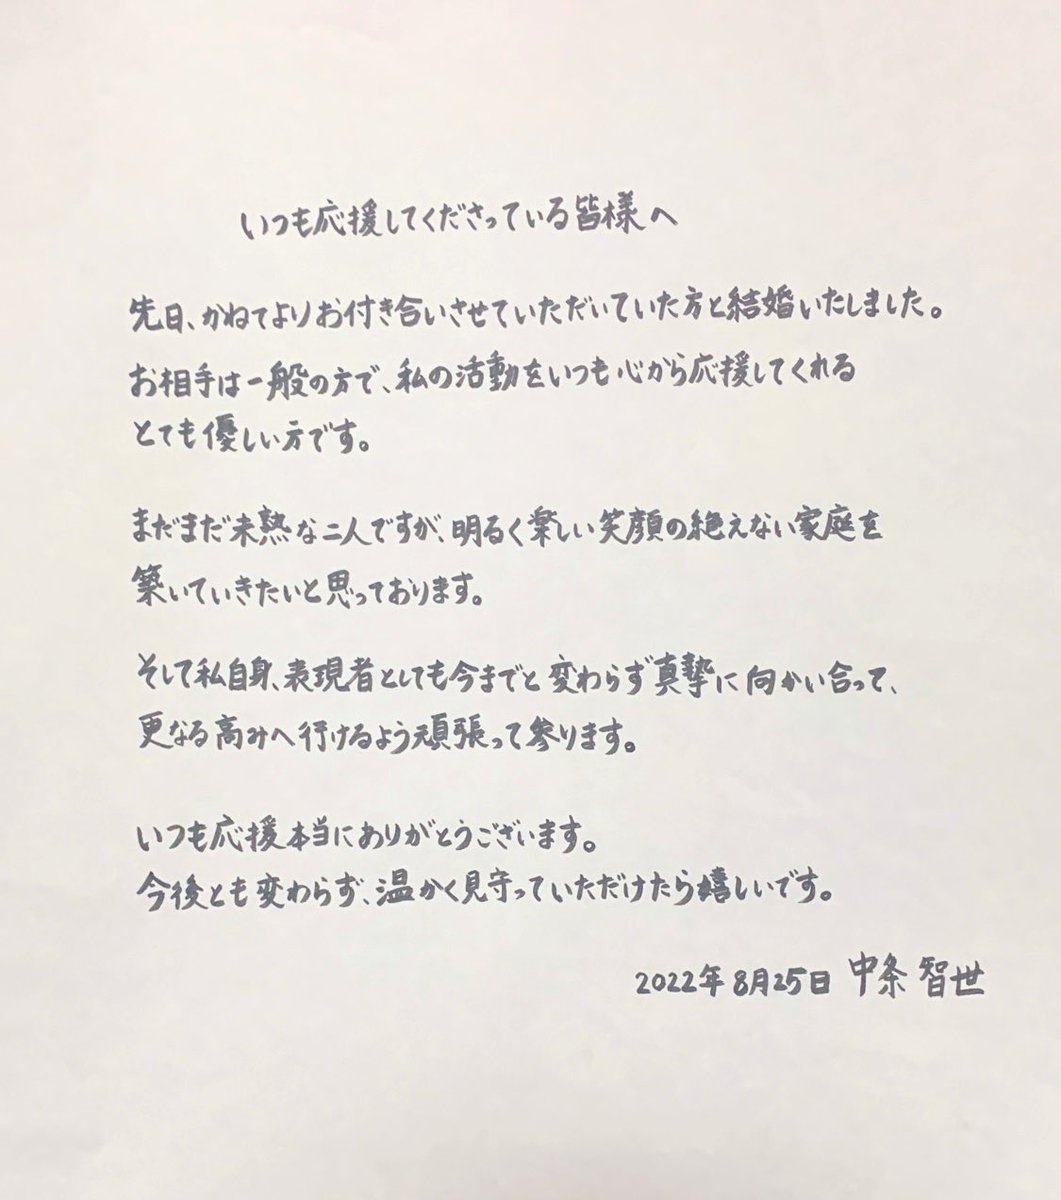 いつも応援してくださっている皆様へ
先日、かねてよりお付き合いさせていただいていた方と結婚いたしました。
お相手は一般の方で、私の活動をいつも心から応援してくれる
とても優しい方です。
まだまだ未熟な二人ですが、明るく楽しい笑顔の絶えない家庭を
築いていきたいと思っております。
そして私自身、表現者としても今までと変わらず真摯に向かい合って、
更なる高みへ行けるよう頑張って参ります。
いつも応援本当にありがとうございます。
今後とも変わらず、温かく見守っていただけたら嬉しいです。
2022年8月25日 中条智世